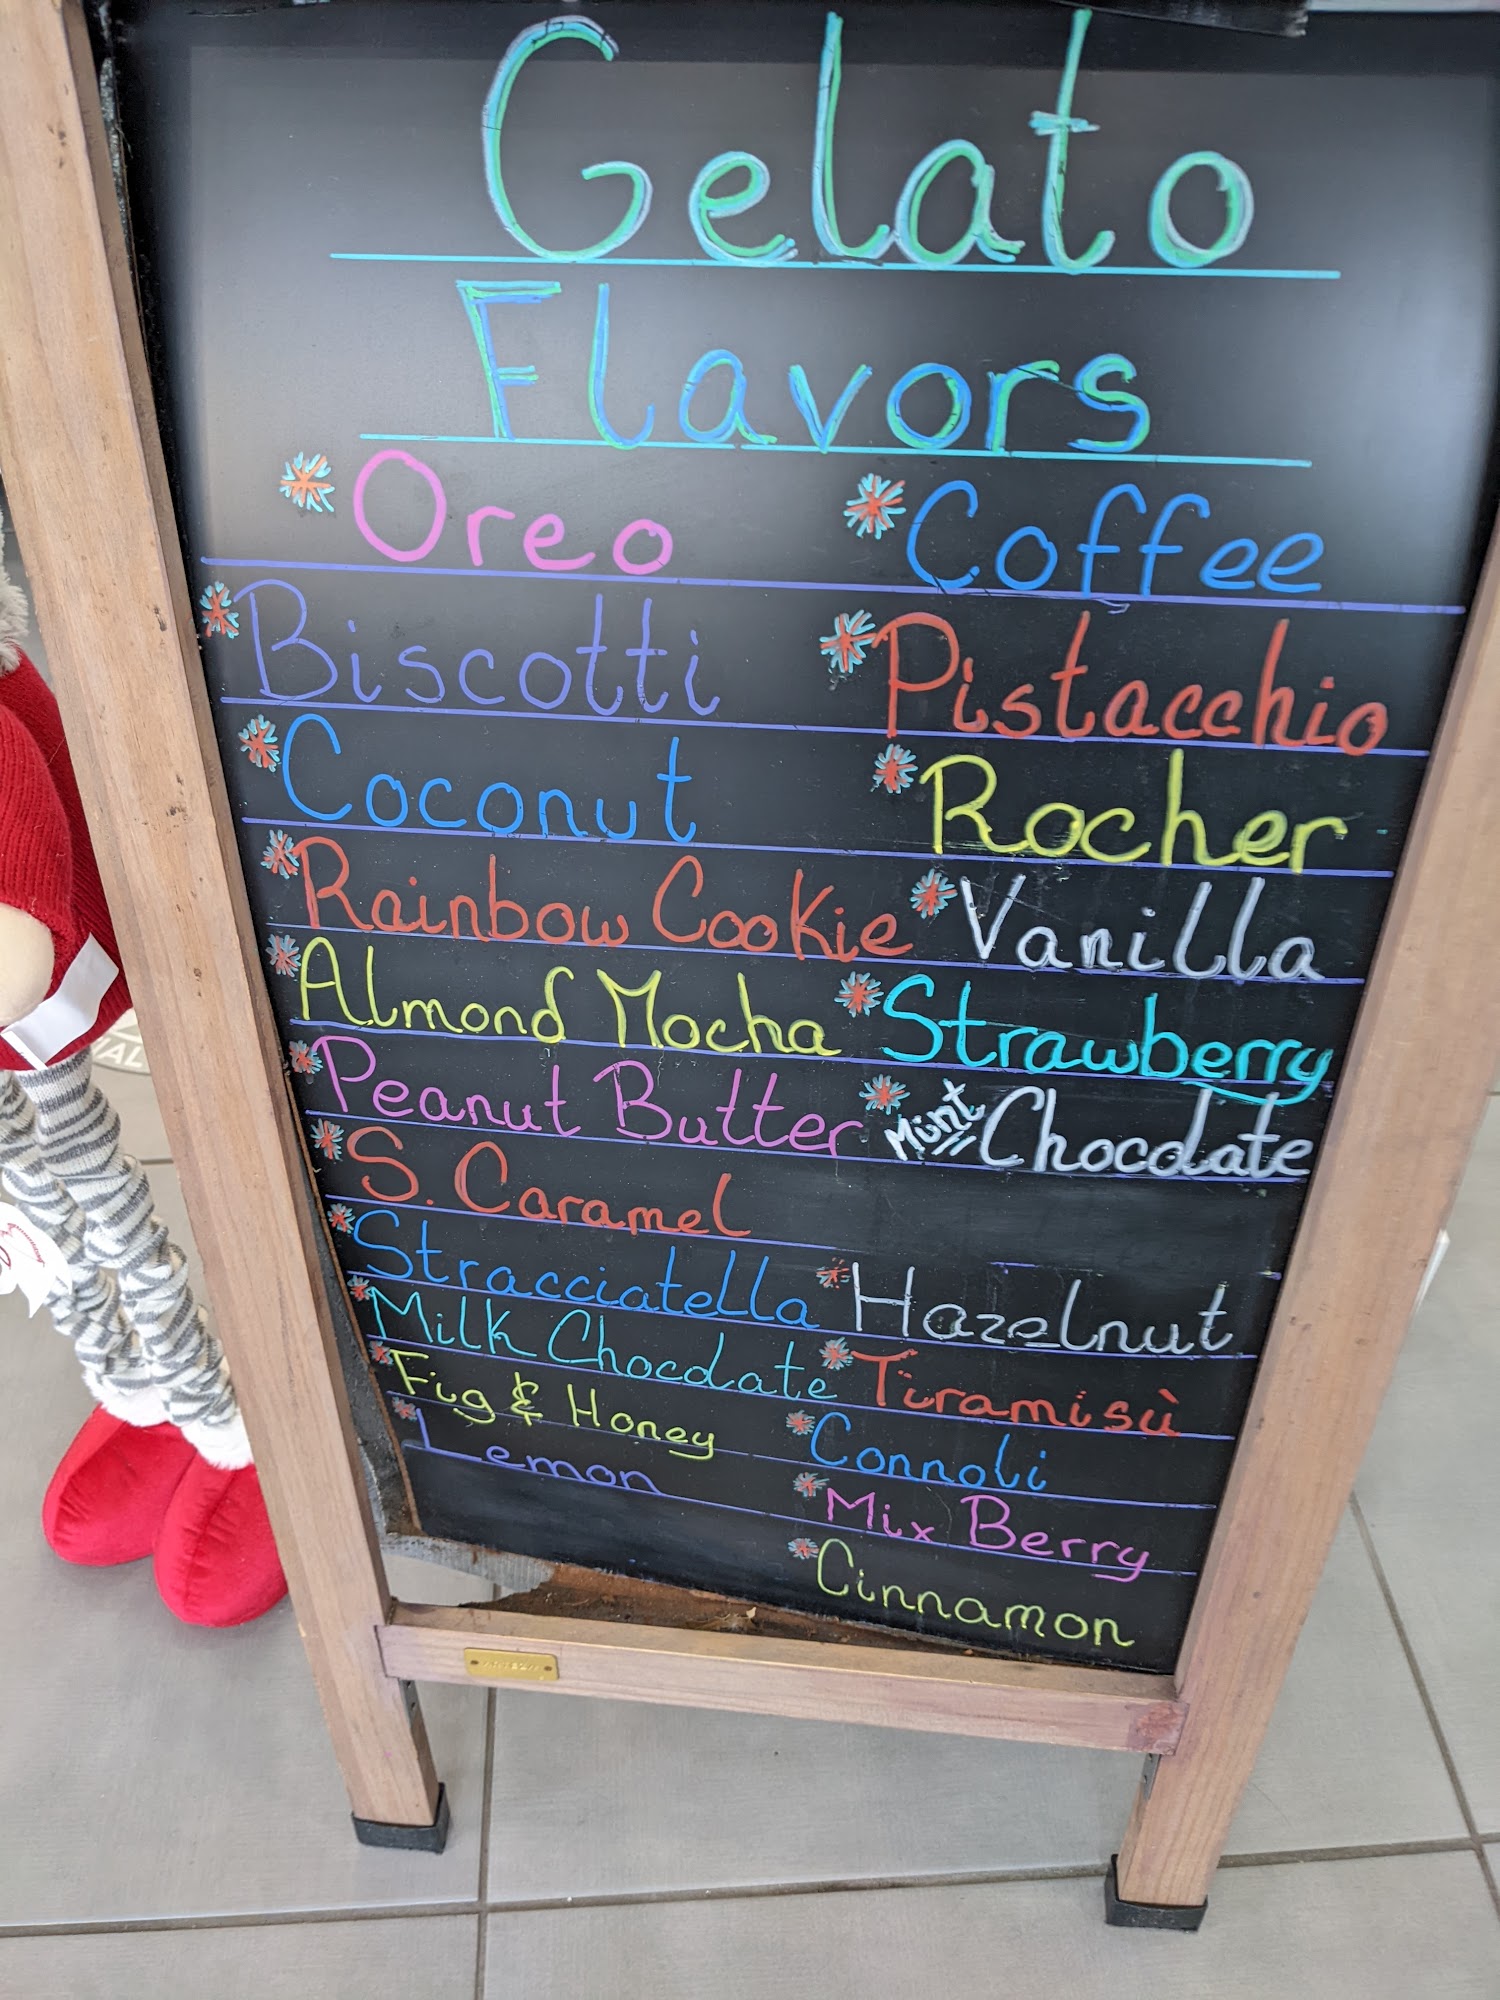 Gelato
Flavors
Oreo
Biscotti
Coconut
Rainbow Cookie
Almond Mocha
Peanut Butter
S. Caramel
Stracciatella
Milk Chocolate
Fig & Honey
Lemon
Coffee
Pistacchio
Rocher
Vanilla
Strawberry
Mint Chocolate
Hazelnut
Tiramisù
Connoli
Mix Berry
Cinnamon